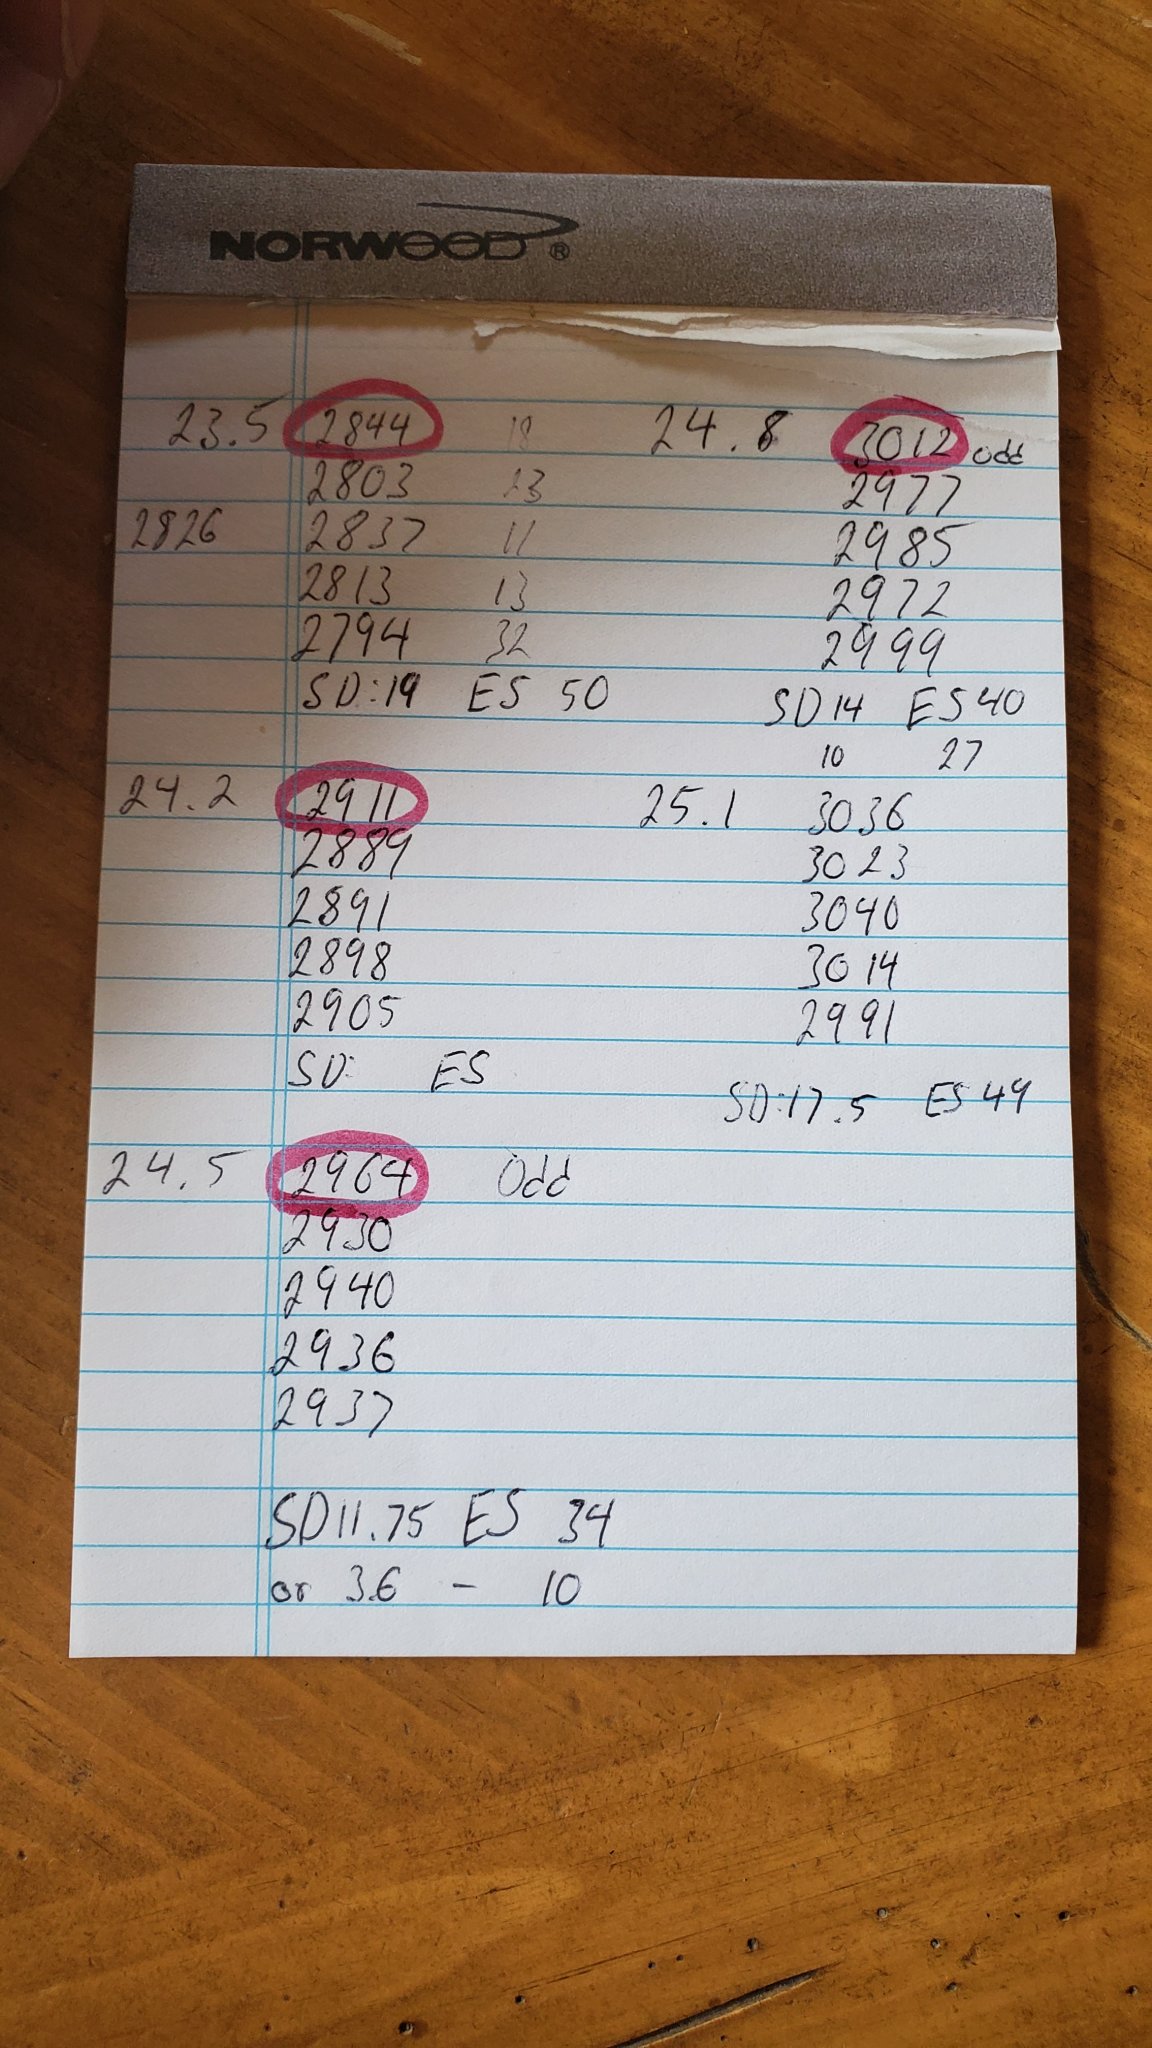 NORWOOD®
23.5 2844 18
2803 23
2826 2837 11
2813 13
2794 32
SD:19 ES 50
24.2 2911
2889
2891
2898
2905
SD: ES
24.5 2964 Odd
2930
2940
2936
2937
SD 11.75 ES 34
or 3.6 - 10
24.8 3012 Odd
2977
2985
2972
2999
SD 14 ES 40
10 27
25.1 3036
3023
3040
3014
2991
SD:17.5 ES 49